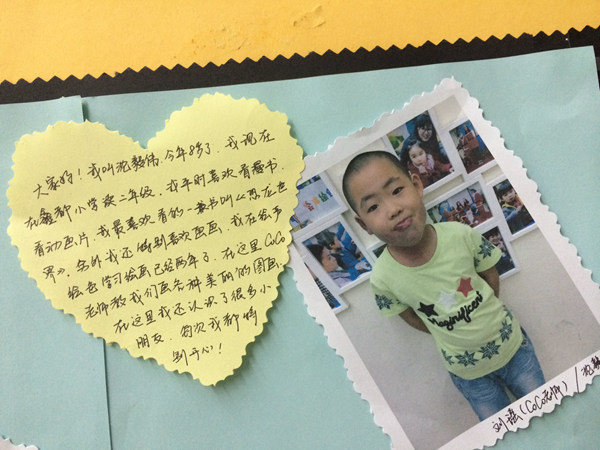 大家好！我叫沈毅伟,今年8岁了,我现在
在鑫都小学读二年级,我平时喜欢看看书
看动画片,我最喜欢看的一本书叫《恐龙世
界》,另外我还特别喜欢画画,我在绘声
绘色学习绘画已经两年了,在这里CoCo
老师教我们画各种美丽的图画,
在这里我还认识了很多小
朋友,每次我都特
别开心！
Magnificent
刘瑶(CoCo老师) / 沈毅